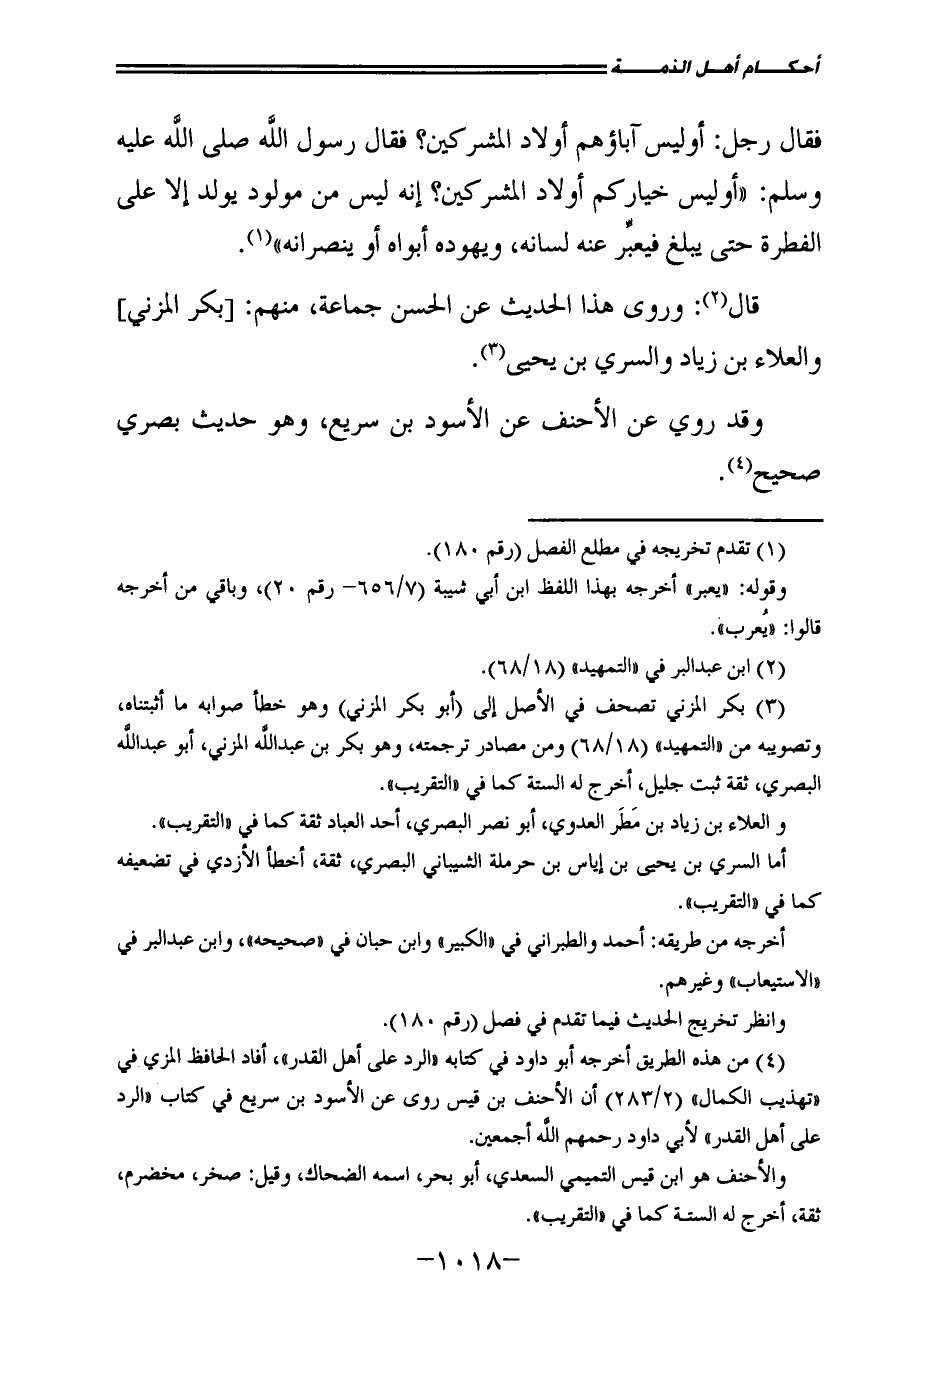 أحكـــام أهـل الذمـــة
فقال رجل: أوليس آباؤهم أولاد المشركين؟ فقال رسول اللَّه صلى اللَّه عليه
وسلم: «أوليس خياركم أولاد المشركين؟ إنه ليس من مولود يولد إلا على
الفطرة حتى يبلغ فيعبِّر عنه لسانه، ويهوده أبواه أو ينصرانه»(١).
قال(٢): وروى هذا الحديث عن الحسن جماعة، منهم: [بكر المزني]
والعلاء بن زياد والسري بن يحيى(٣).
وقد روي عن الأحنف عن الأسود بن سريع، وهو حديث بصري
صحيح(٤).
(١) تقدم تخريجه في مطلع الفصل (رقم ١٨٠).
وقوله: «يعبر» أخرجه بهذا اللفظ ابن أبي شيبة (٦٥٦/٧- رقم ٢٠)، وباقي من أخرجه
قالوا: «يُعرب».
(٢) ابن عبدالبر في «التمهيد» (٦٨/١٨).
(٣) بكر المزني تصحف في الأصل إلى (أبو بكر المزني) وهو خطأ صوابه ما أثبتناه،
وتصويبه من «التمهيد» (٦٨/١٨) ومن مصادر ترجمته، وهو بكر بن عبداللَّه المزني، أبو عبداللَّه
البصري، ثقة ثبت جليل، أخرج له الستة كما في «التقريب».
و العلاء بن زياد بن مَطَر العدوي، أبو نصر البصري، أحد العباد ثقة كما في «التقريب».
أما السري بن يحيى بن إياس بن حرملة الشيباني البصري، ثقة، أخطأ الأزدي في تضعيفه
كما في «التقريب».
أخرجه من طريقه: أحمد والطبراني في «الكبير» وابن حبان في «صحيحه»، وابن عبدالبر في
«الاستيعاب» وغيرهم.
وانظر تخريج الحديث فيما تقدم في فصل (رقم ١٨٠).
(٤) من هذه الطريق أخرجه أبو داود في كتابه «الرد على أهل القدر»، أفاد الحافظ المزي في
«تهذيب الكمال» (٢٨٣/٢) أن الأحنف بن قيس روى عن الأسود بن سريع في كتاب «الرد
على أهل القدر» لأبي داود رحمهم اللَّه أجمعين.
والأحنف هو ابن قيس التميمي السعدي، أبو بحر، اسمه الضحاك، وقيل: صخر، مخضرم،
ثقة، أخرج له الستة كما في «التقريب».
-١٠١٨-